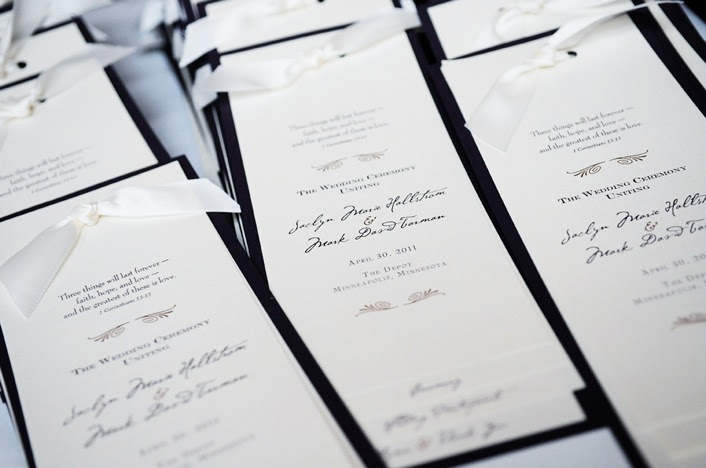 Three things will last forever —
faith, hope, and love —
and the greatest of these is love.
1 Corinthians 13:13
Three things will last forever —
faith, hope, and love —
and the greatest of these is love.
1 Corinthians 13:13
The Wedding Ceremony
Uniting
Jaclyn Marie Hallstrom
&
Mark David Torman
April 30, 2011
The Depot
Minneapolis, Minnesota
Three things will last forever —
faith, hope, and love —
and the greatest of these is love.
1 Corinthians 13:13
The Wedding Ceremony
Uniting
Jaclyn Marie Hallstrom
&
Mark David Torman
April 30, 2011
The Depot
Minneapolis, Minnesota
Three things will last forever —
faith, hope, and love —
and the greatest of these is love.
1 Corinthians 13:13
The Wedding Ceremony
Uniting
Jaclyn Marie
&
Mark David
April 30, 20
The Depot
Minneapolis,